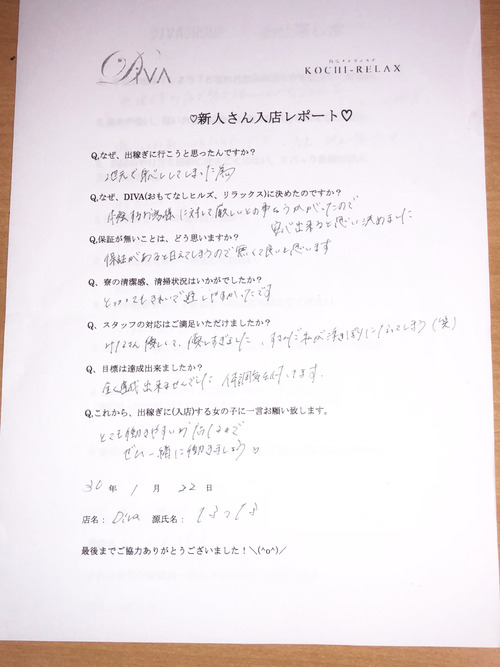 DIVA
KOCHI-RELAX
♡新人さん入店レポート♡
Q,なぜ、出稼ぎに行こうと思ったんですか？
Q,なぜ、DIVA(おもてなしヒルズ、リラックス)に決めたのですか？
お客様に対して厳しいとの事をうかがいたので
安心出来ると思い決めました
Q,保証が無いことは、どう思いますか？
保証があると甘えてしまうので無くて良いと思います
Q、寮の清潔感、清掃状況はいかがでしたか？
とってもきれいで過しやすかったです
Q、スタッフの対応はご満足いただけましたか？
優しくて、優しすぎました、
(笑)
Q、目標は達成出来ましたか？
全く達成出来ませんでした 体調気を付けます.
Q,これから、出稼ぎに(入店)する女の子に一言お願い致します。
とても働きやすい
ぜひ一緒に働きましょう
30年 1月 22日
店名： Diva 源氏名：
最後までご協力ありがとうございました！＼(^o^)／